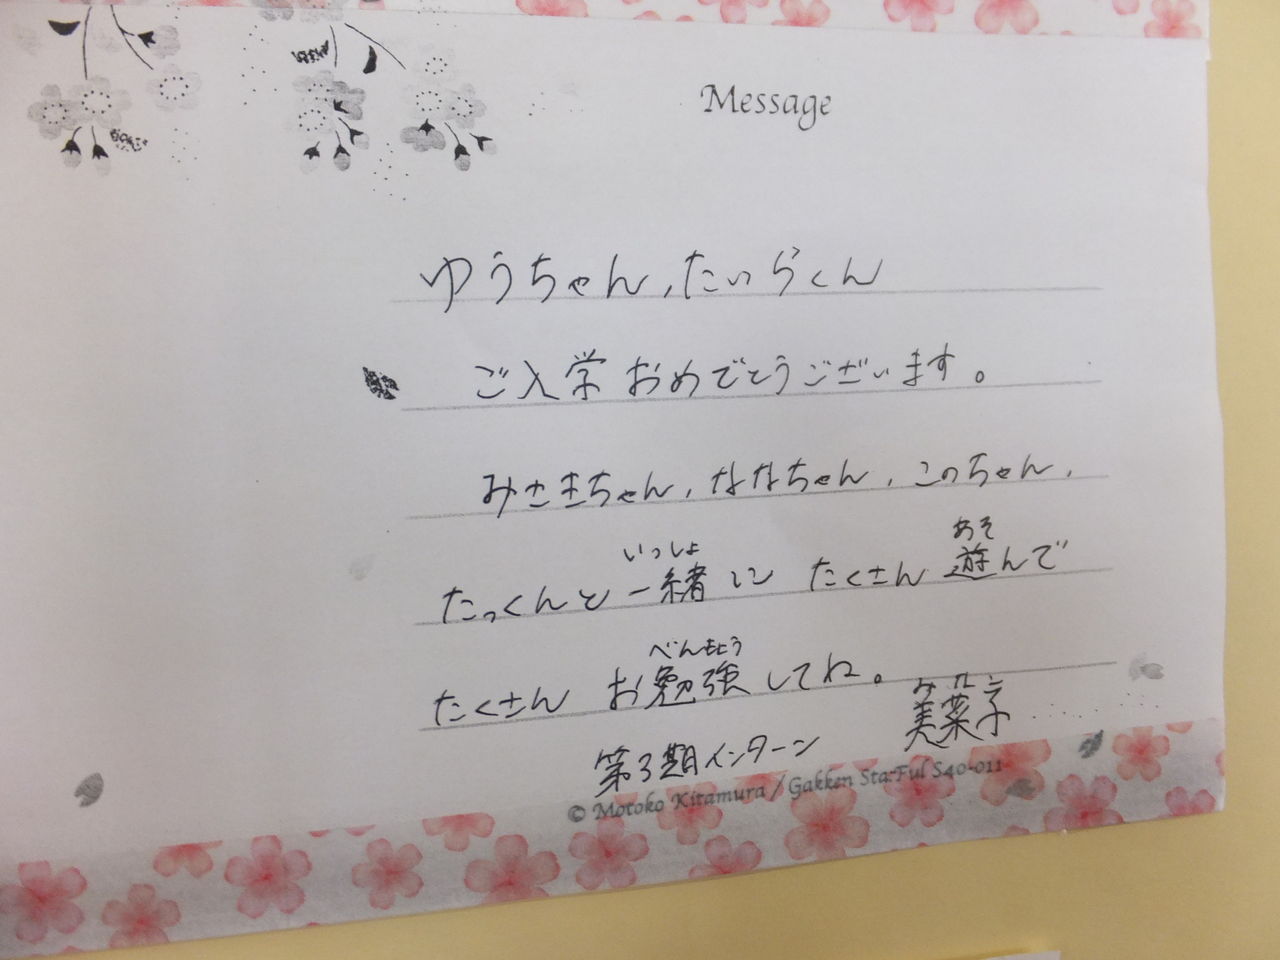 Message
ゆうちゃん，たいらくん
ご入学おめでとうございます。
みさきちゃん，ななちゃん，このちゃん，
いっしょ あそ
たっくんと一緒にたくさん遊んで
べんきょう
たくさん お勉強してね。
みなこ
第3期インターン 美菜子
© Motoko Kitamura / Gakken Sta:Ful S40-011